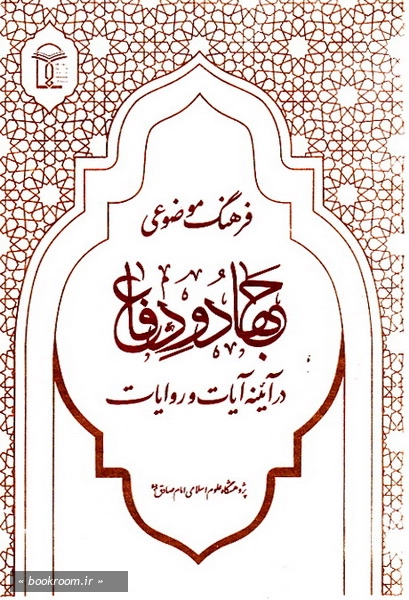 فرهنگ موضوعی
جهاد و دفاع
در آئینه آیات و روایات
پژوهشگاه علوم اسلامی امام صادق
« bookroom.ir »